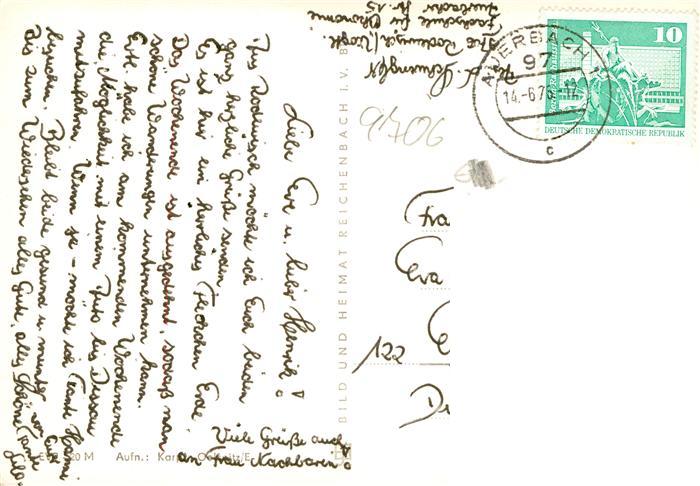 Liebe Eva u. lieber Henrik!
Aus Rodewisch möchte ich Euch beiden
ganz herzliche Grüße senden.
Es ist hier ein herrliches Fleckchen Erde
Das Wochenende ist ausgedehnt, sodaß man
schöne Wanderungen unternehmen kann.
Evtl. habe ich am kommenden Wochenende
die Möglichkeit mit einem Auto bis Dessau
mitzufahren. Wenn ja – möchte ich Tante Hanni
besuchen. Bleibt beide gesund u. munter
bis zum Wiedersehn alles Gute, alles Schöne von Eurer
Tante
Viele Grüße auch
an Frau Nachbarin!
BILD UND HEIMAT REICHENBACH I. V.
20 M Aufn.:
Fachschule für Ökonomie
Nr. 15
9706
AUERBACH
97
14.-6.76.-17
c
10
DEUTSCHE DEMOKRATISCHE REPUBLIK
Fra
Eva
122